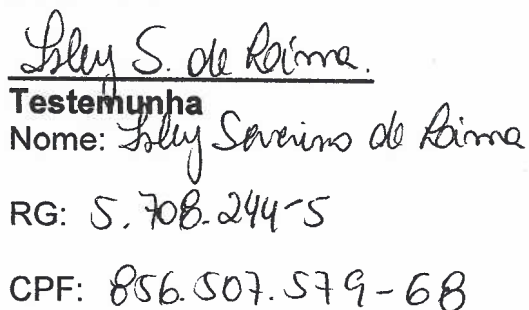 Isley S. de Laima.
Testemunha
Nome: Isley Severino de Laima
RG: 5.708.244-5
CPF: 856.507.579-68